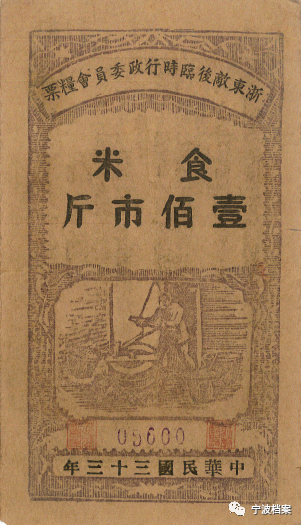 浙東敵後臨時行政委員會糧票
食米
壹佰市斤
05600
中華民國三十三年
宁波档案